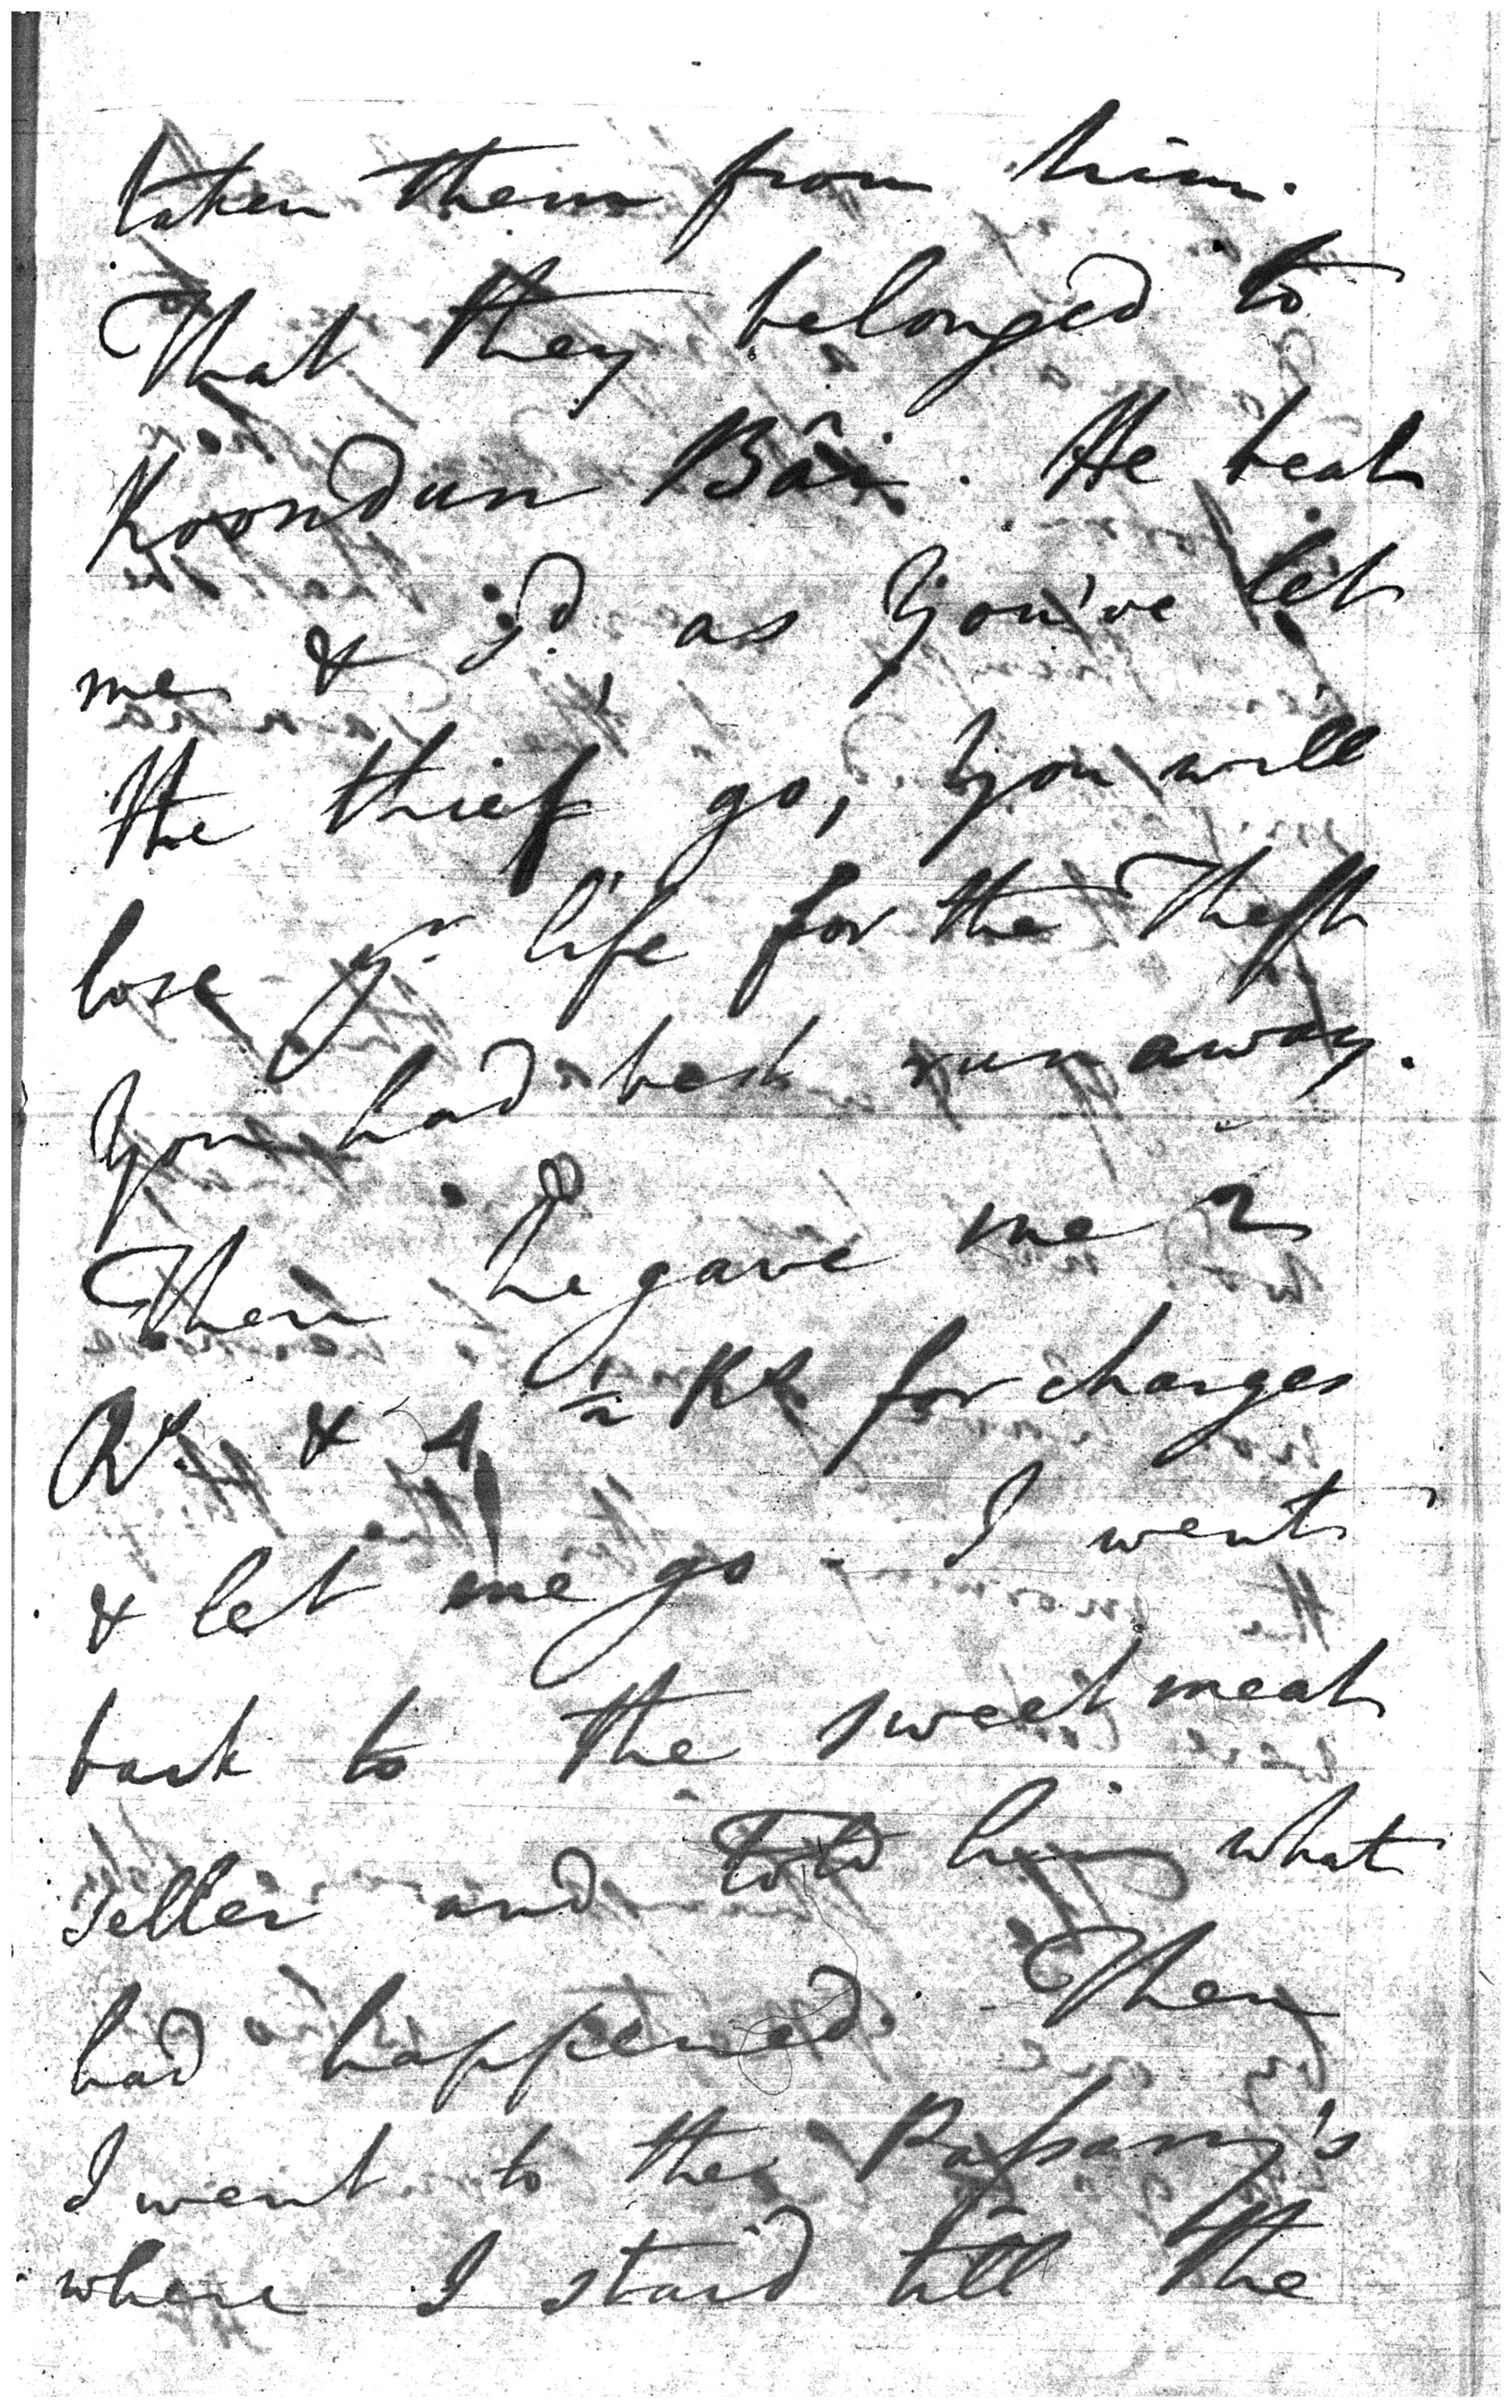 taken them from him.
That they belonged to
Koondun Bâi. He beat
me & sd. as you've let
the thief go, you will
lose yr. life for the Theft
you had best run away.
Then he gave me 2
Rs. & 4 1/2 Rs for charges
& let me go - I went
back to the sweetmeat
seller and told him what
had happened. Then
I went to the
where I staid till the